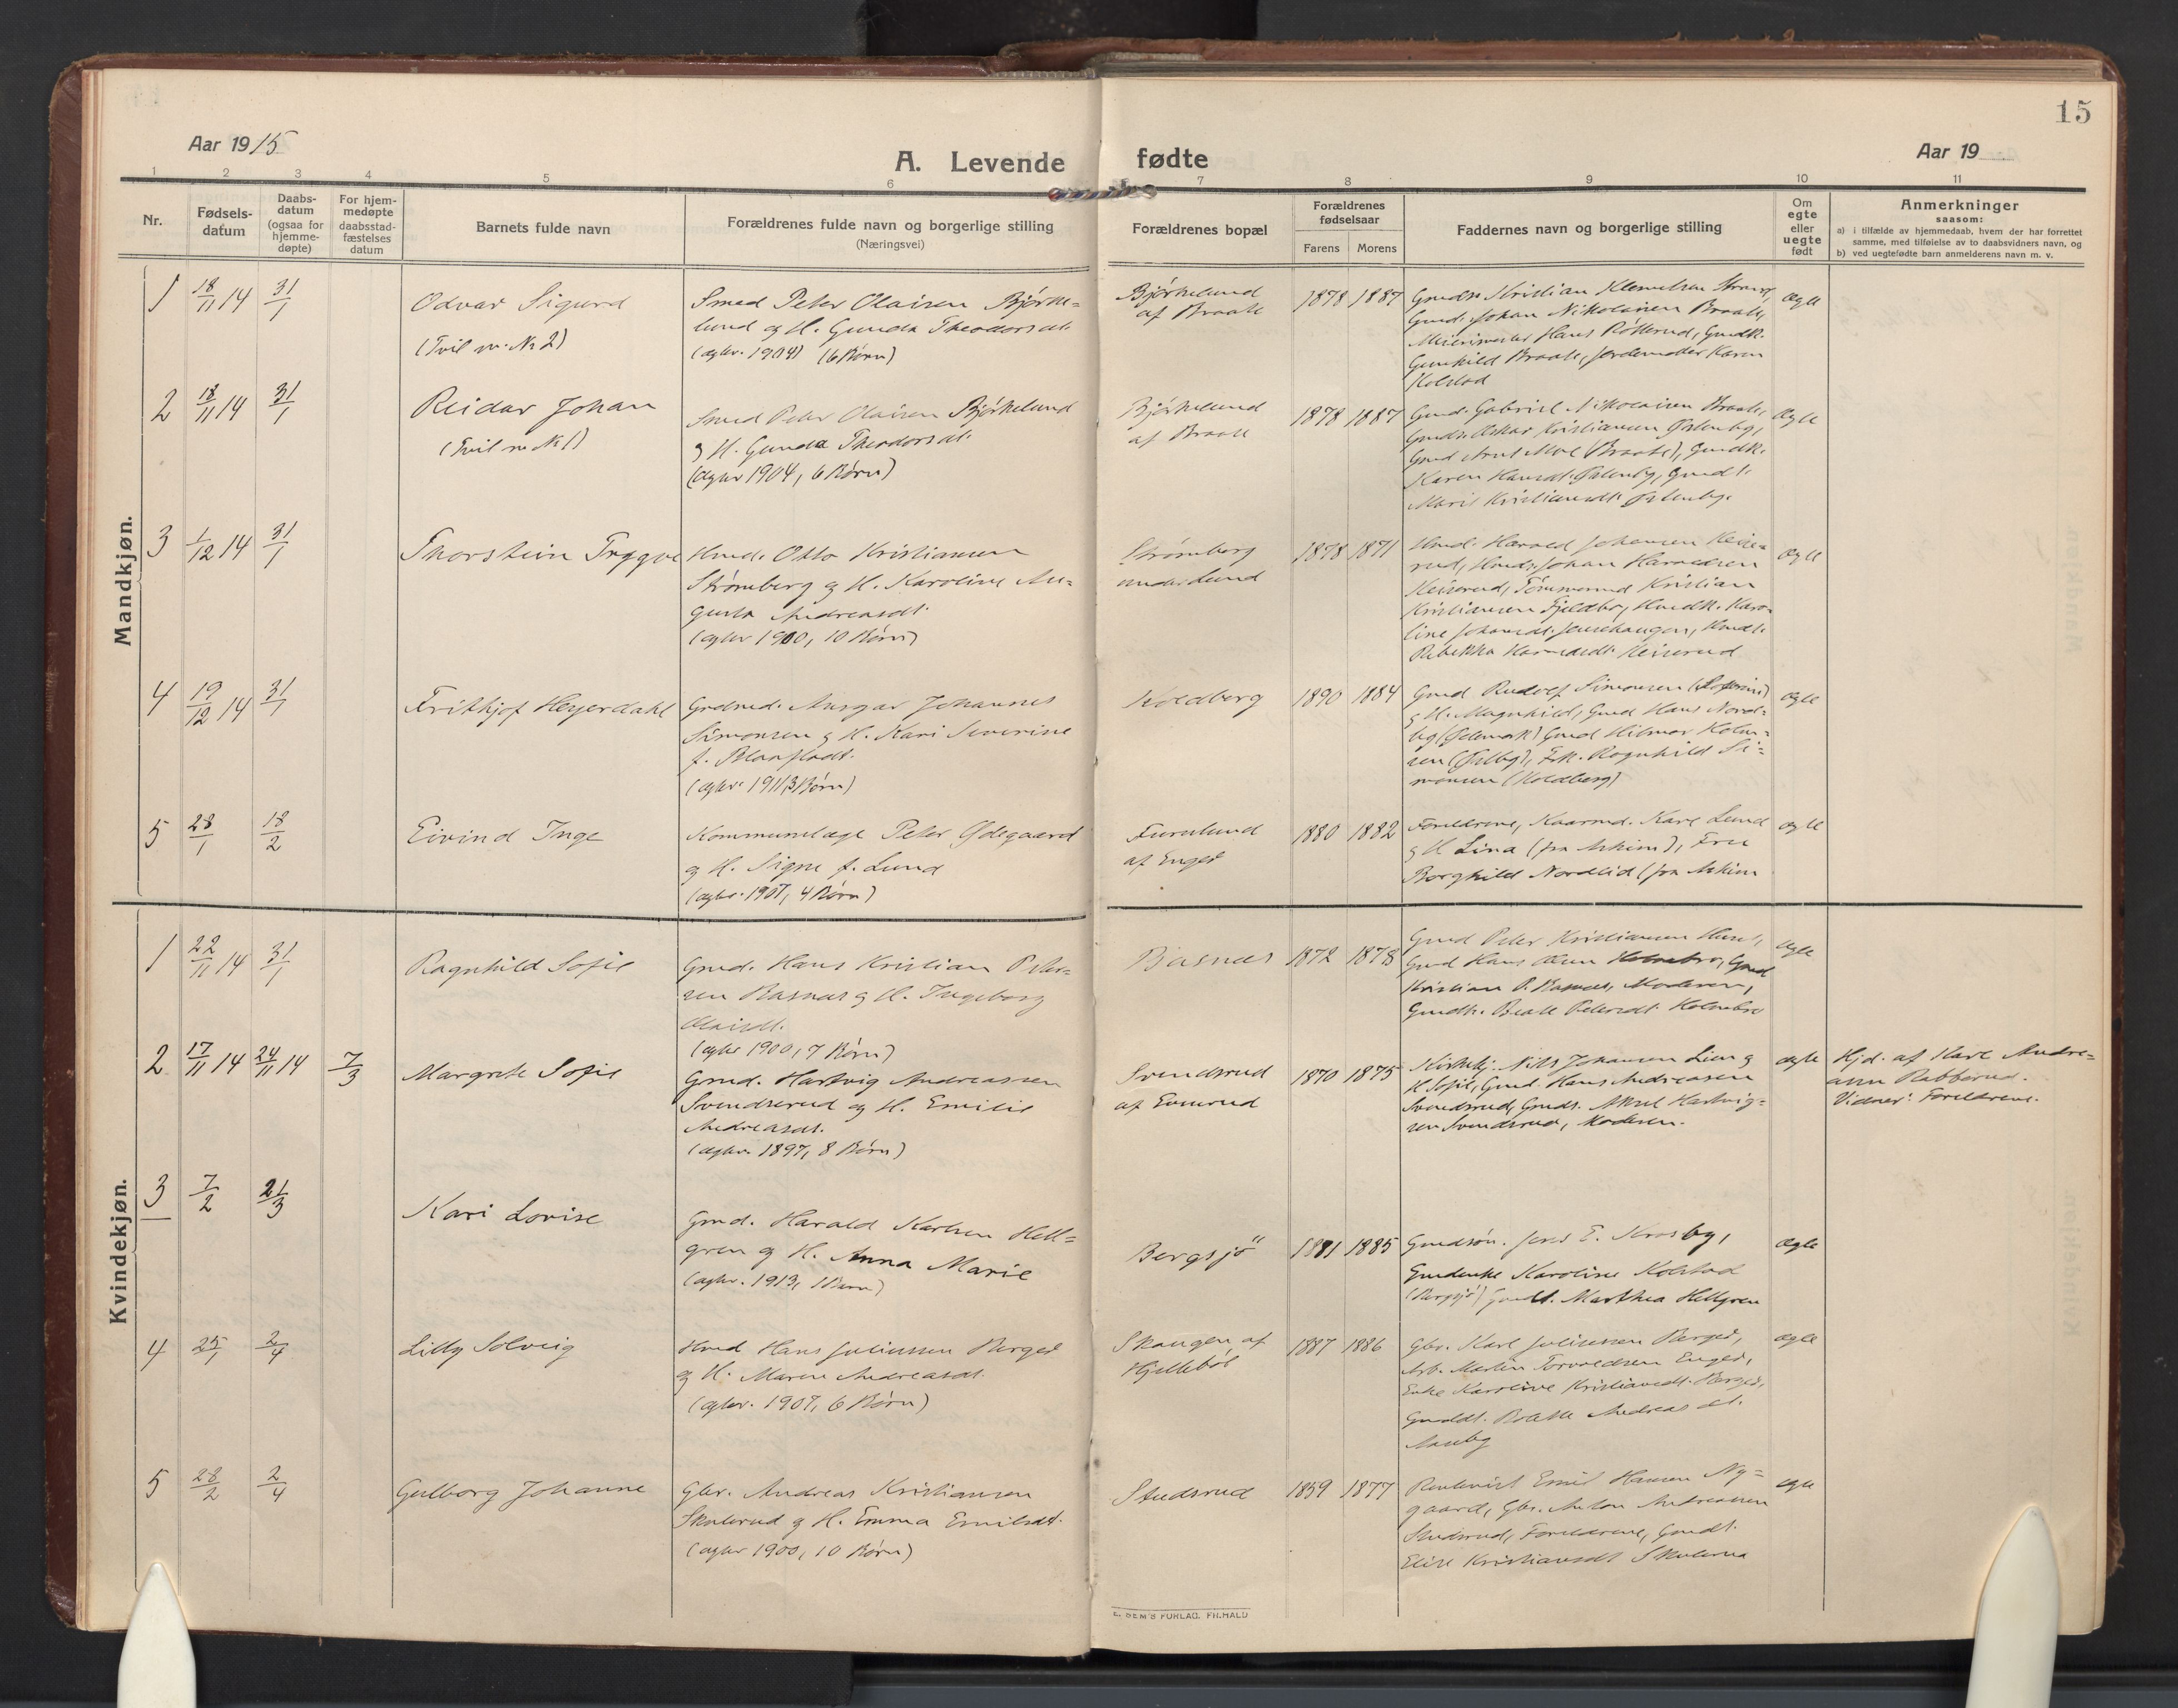 15
Aar 1915
A. Levende fødte
Aar 19
1 2 3 4 5 6 7 8 9 10 11
Nr.
Fødsels-
datum
Daabs-
datum
(ogsaa for
hjemme-
døpte)
For hjem-
medøpte
daabsstad-
fæstelses
datum
Barnets fulde navn
Forældrenes fulde navn og borgerlige stilling
(Næringsvei)
Forældrenes bopæl
Forældrenes
fødselsaar
Farens Morens
Faddernes navn og borgerlige stilling
Om
egte
eller
uegte
født
Anmerkninger
saasom:
a) i tilfælde av hjemmedaab, hvem der har forrettet
samme, med tilføielse av to daabsvidners navn, og
b) ved uegtefødte barn anmelderens navn m. v.
Mandkjøn.
1 18/11 14 31/1
Odvar Sigurd
(Tvil m. No 2)
Smed Peter Olaisen Bjørke-
lund og H. Gunda Theodorsdt.
(ægtev. 1904) (6 Børn)
Bjørkelund
af Braate
1878 1887
Gmds. Kristian Klemetsen Strand,
Gmd. Johan Nikolaisen Braate,
Meierimester Hans Røtterud, Gmdk.
Gunhild Braate, Jordemoder Karen
Kolstad
ægte
2 18/11 14 31/1
Reidar Johan
(Tvil m No 1)
Smed Peter Olaisen Bjørkelund
og H. Gunda Theodorsdt.
(ægtev 1904, 6 Børn)
Bjørkelund
af Braate
1878 1887
Gmd. Gabriel Nikolaisen Braate,
Gmds. Oskar Kristiansen Østenby,
Gmd (Braate), Gmdk.
Karen Hansdt. Østenby, Gmdt.
Marie Kristiansdt. Østenby.
Ægte
3 1/12 14 31/1
Thorstein Trygve
Hmd. Otto Kristiansen
Strømberg og H. Karoline Au-
gusta Andreasdt.
(ægtev 1900, 10 Børn)
Strømberg
under Lund
1878 1871
Hmd. Harald Johansen Heise-
rud, Hmds. Johan Haraldsen
Heiserud, Tømmermd Kristian
Kristiansen Fjeldbo, Hmdk. Karo-
line Johansdt. Jensehaugen, Hmdt.
Rebekka Haraldsdt. Heiserud
Ægte
4 19/12 14 31/1
Frithjof Heyerdahl
Grdmd. Ansgar Johannes
Simonsen og H. Kari Severine
f. Blaafladt.
(ægtev 1911, 3 Børn)
Koldberg
1890 1884
Gmd Rudolf Simonsen
og H. Magnhild, Gmd Hans Nord-
by (Ødemark) Gmd Hilmar Holm-
sen (Ørlby), Frk. Ragnhild Si-
monsen (Koldberg)
ægte
5 28/1 18/2
Eivind Inge
Kommunelæge Peter Ødegaard
og H. Signe f. Lund
(ægtev. 1907, 4 Børn)
Furulund
af Enger
1880 1882
Forældrene, Kaarmd. Karl Lund
og H Lina (fra Askim), Fru
Borghild Nordlid (fra Askim
ægte
Kvindekjøn.
1 22/11 14 31/1
Ragnhild Sofie
Gmd. Hans Kristian Peter-
sen Basnæs og H. Ingeborg
Olaisdt.
(ægtev 1900, 7 Børn)
Basnæs
1872 1878
Gmd Peter Kristiansen
Gmd Hans Olsen Holmebro, Gmd
Kristian P. Basnæs, Moderen,
Gmdk. Beate Petersdt. Holmebro
ægte
2 17/11 14 24/11 14 7/3
Margrete Sofie
Gmd. Hartvig Andreassen
Svendsrud og H. Emilie
Andreasdt.
(ægtev. 1897, 8 Børn)
Svendsrud
af Evenrud
1870 1875
Kirketj. Nils Johansen Lien og
H. Sofie, Gmd. Hans Andreasen
Svendsrud, Gmds. Aksel Hartvig-
sen Svendsrud, Moderen.
ægte
Hjd. af Karl Andre-
asen Rabberud.
Vidner: Forældrene.
3 7/2 21/3
Kari Lovise
Gmd. Harald Karlsen Hell-
gren og H. Anna Marie
(ægtev. 1913, 1 Barn)
Bergsjö
1881 1885
Gmdsøn. Jens E. Krosby,
Gmdenke Karoline Kolstad
(Bergsjö) Gmdt. Marthea Hellgren
Ægte
4 25/1 2/4
Lilly Solveig
Hmd Hans Juliussen Berger
og H. Maren Andreasdt.
(ægtev. 1907, 6 Børn)
Skaugen af
Hjellebøl
1887 1886
Gbr. Karl Juliussen Berger,
Arb. Martin Torvaldsen Enger,
Enke Karoline Kristiansdt. Berger,
Gmddt. Bolette Andreasdt.
Aaseby
ægte
5 28/2 2/4
Gulborg Johanne
Gbr. Andreas Kristiansen
Skulerud og H. Emma Emilsdt.
(ægtev 1900, 10 Børn)
Studsrud
1859 1877
Emil Hansen Ny-
gaard, Gbr. Anton Andreassen
Studsrud, Forældrene, Gmdt.
Elise Kristiansdt Skulerud
ægte
E. SEM'S FORLAG. FR.HALD